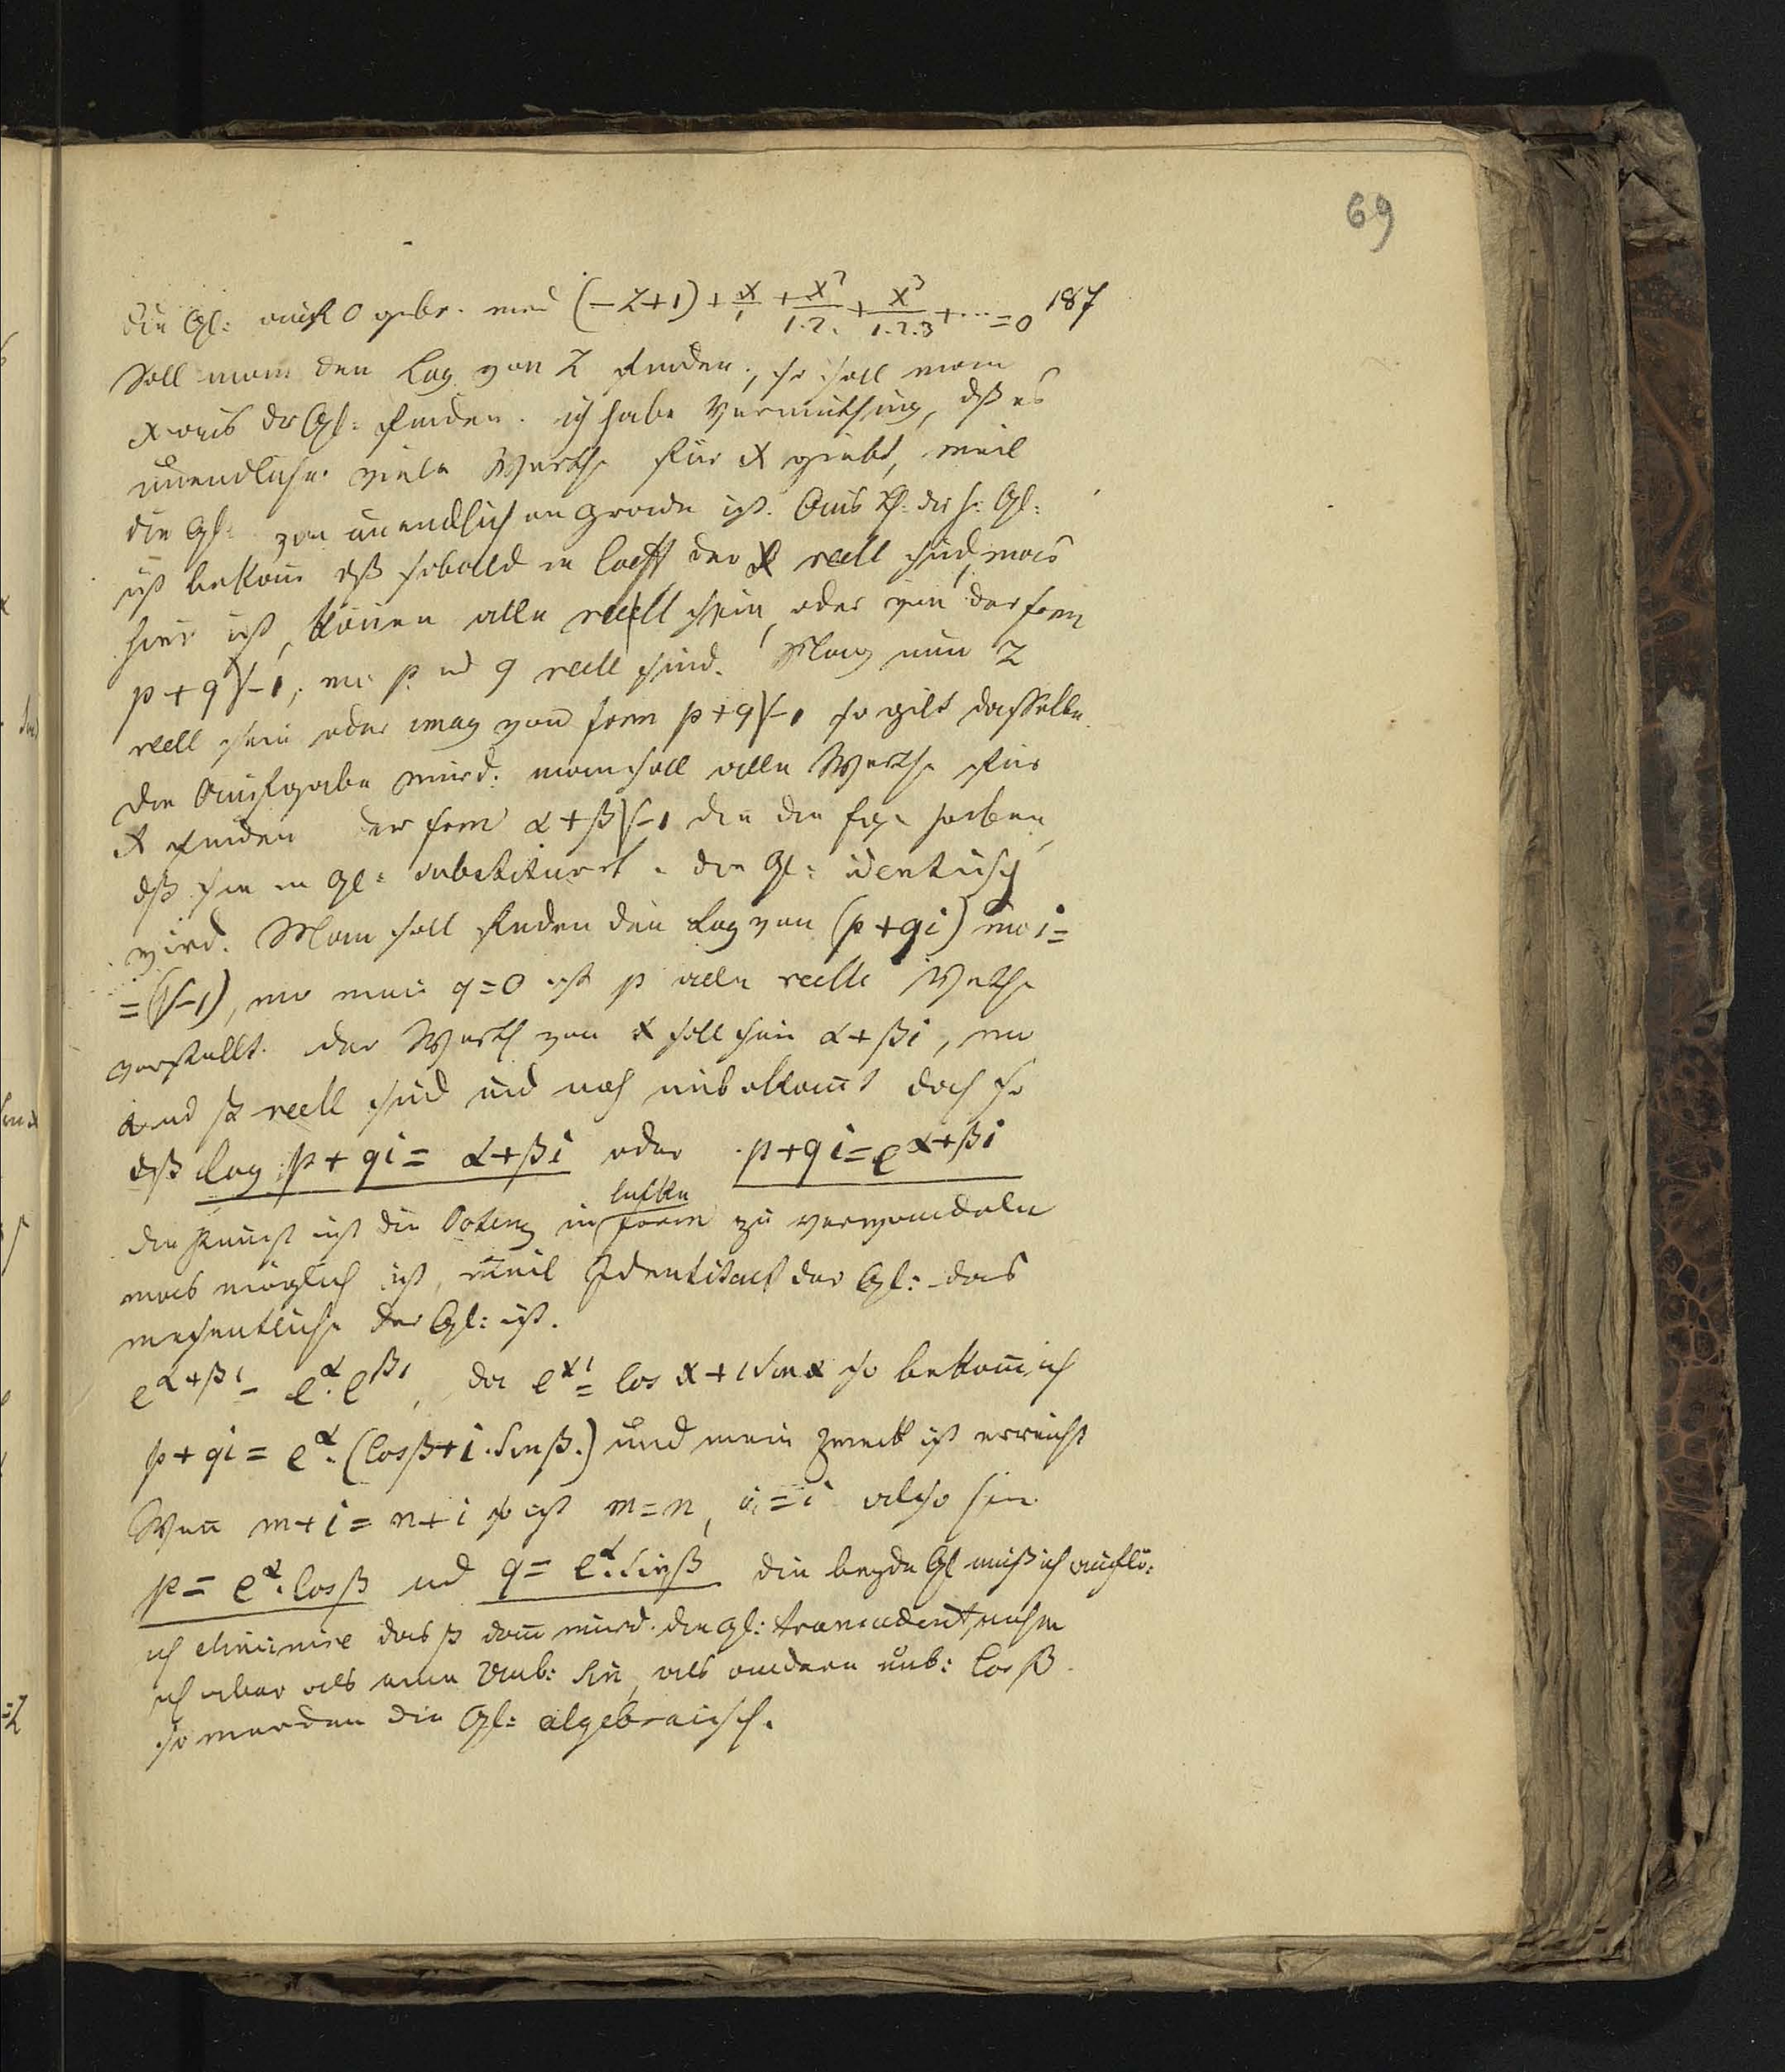 69
187
die Gl: auf 0 gebr. wird (-z+1) + x/1 + x²/1.2. + x³/1.2.3 + ... = 0
Soll man den Log von z finden, so soll man
x aus der Gl: finden. ich habe Vermuthung, dß es
unendliche viele Werthe für x giebt, weil
die Gl: von unendlichen Grade ist. Aus Gl:
ist bekant dß sobald Coeff der x reell sind, was
hier ist, könen alle reell sein, oder von der form
p+q√-1, wo p ud q reell sind. Mag nun z
reell sein oder imag von form p+q√-1 so gilt dasselbe.
Die Aufgabe wird: man soll alle Werthe für
x finden der form α+β√-1 die die haben,
dß sie in Gl: substituirt die Gl: identisch
wird. Man soll finden den Log von (p+qi) wo i=
=(√-1), wo wen q=0 ist p alle reelle Werthe
vorstellt. der Werth von x soll sein α+βi, wo
α und β reell sind und noch unbekant doch so
dß log p+qi = α+βi oder p+qi = e^α+βi
die Kunst ist die Potenz in form zu verwandeln
was möglich ist, weil Identitaet der Gl: das
wesentliche der Gl: ist.
e^α+βi = e^α.e^βi, da e^xi = Cos x + i Sin x so bekom ich
p+qi = e^α.(Cosβ+i.Sinβ.) und mein Zweck ist erreicht
Wen m+i = n+i so ist m=n, i=i also hier
p = e^α.Cosβ ud q = e^α.Sinβ die beyde Gl muß ich auflö:
ich eliminire das β dann wird die Gl: transcadent, nehm
ich aber als eine Unb: Sin, als andere unb: Cos β
so werden die Gl: algebraisch.